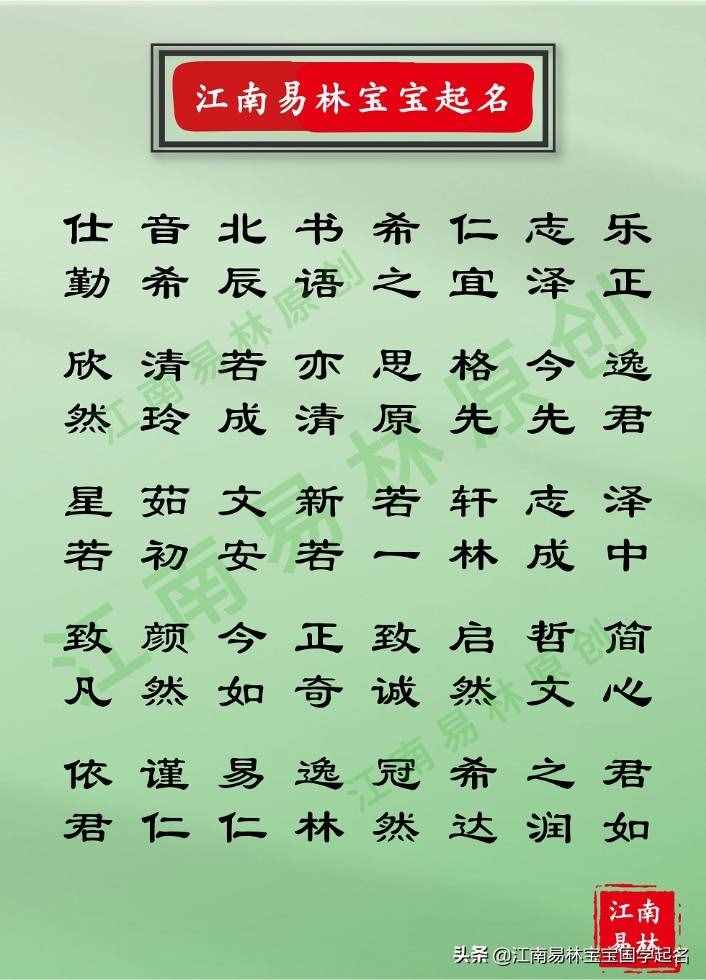 江南易林宝宝起名
仕 音 北 书 希 仁 志 乐
勤 希 辰 语 之 宜 泽 正
欣 清 若 亦 思 格 今 逸
然 玲 成 清 原 先 先 君
星 茹 文 新 若 轩 志 泽
若 初 安 若 一 林 成 中
致 颜 今 正 致 启 哲 简
凡 然 如 奇 诚 然 文 心
依 谨 易 逸 冠 希 之 君
君 仁 仁 林 然 达 润 如
江南易林原创
江南易林原创
江南易林原创
江南
易林
头条 @江南易林宝宝国学起名